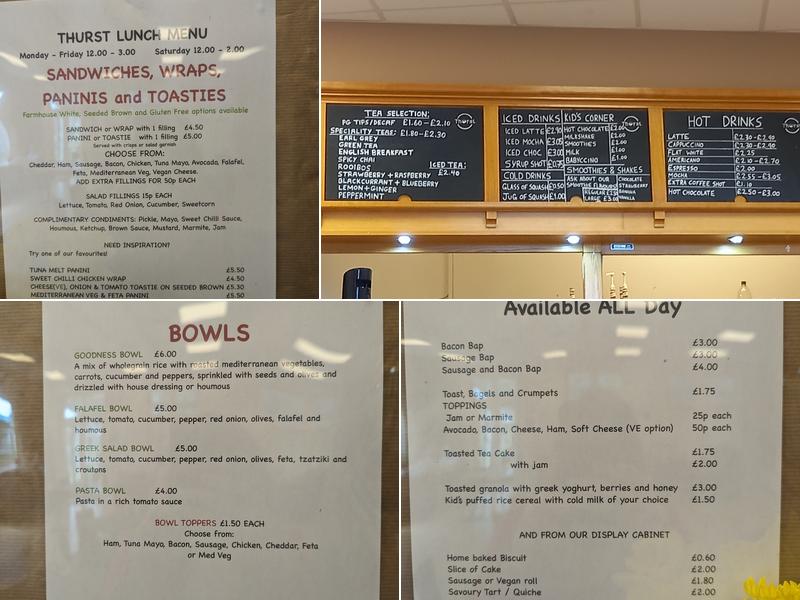 THURST LUNCH MENU
Monday - Friday 12.00 - 3.00 Saturday 12.00 - 2.00
SANDWICHES, WRAPS,
PANINIS and TOASTIES
Farmhouse White, Seeded Brown and Gluten Free options available
SANDWICH or WRAP with 1 filling £4.50
PANINI or TOASTIE with 1 filling £5.00
Served with crisps or salad garnish
CHOOSE FROM:
Cheddar, Ham, Sausage, Bacon, Chicken, Tuna Mayo, Avocado, Falafel,
Feta, Mediterranean Veg, Vegan Cheese.
ADD EXTRA FILLINGS FOR 50p EACH
SALAD FILLINGS 15p EACH
Lettuce, Tomato, Red Onion, Cucumber, Sweetcorn
COMPLIMENTARY CONDIMENTS: Pickle, Mayo, Sweet Chilli Sauce,
Houmous, Ketchup, Brown Sauce, Mustard, Marmite, Jam
NEED INSPIRATION?
Try one of our favourites!
TUNA MELT PANINI £5.50
SWEET CHILLI CHICKEN WRAP £4.50
CHEESE(VE), ONION & TOMATO TOASTIE ON SEEDED BROWN £5.30
MEDITERRANEAN VEG & FETA PANINI £5.50
TEA SELECTION:
PG TIPS/DECAF £1.60-£2.10
SPECIALITY TEAS: £1.80-£2.30
EARL GREY
GREEN TEA
ENGLISH BREAKFAST
SPICY CHAI
ROOIBOS
STRAWBERRY + RASPBERRY
BLACKCURRANT + BLUEBERRY
LEMON + GINGER
PEPPERMINT
ICED TEA:
£2.40
Thurst
ICED DRINKS
ICED LATTE £2.90
ICED MOCHA £3.05
ICED CHOC £3.00
SYRUP SHOT £0.75
COLD DRINKS
GLASS OF SQUASH £0.50
JUG OF SQUASH £1.00
KID'S CORNER
HOT CHOCOLATE £2.00
MILKSHAKE £2.00
SMOOTHIES £2.00
MILK £1.00
BABYCCINO £1.00
SMOOTHIES & SHAKES
ASK ABOUT OUR
SMOOTHIE FLAVOURS
REGULAR
LARGE
CHOCOLATE
STRAWBERRY
BANANA
VANILLA
HOT DRINKS
Thurst
LATTE £2.30-£2.90
CAPPUCCINO £2.30-£2.90
FLAT WHITE £2.25
AMERICANO £2.10-£2.70
ESPRESSO £2.00
MOCHA £2.55-£3.05
EXTRA COFFEE SHOT £1.10
HOT CHOCOLATE £2.50-£3.00
BOWLS
GOODNESS BOWL £6.00
A mix of wholegrain rice with roasted mediterranean vegetables,
carrots, cucumber and peppers, sprinkled with seeds and olives and
drizzled with house dressing or houmous
FALAFEL BOWL £5.00
Lettuce, tomato, cucumber, pepper, red onion, olives, falafel and
houmous
GREEK SALAD BOWL £5.00
Lettuce, tomato, cucumber, pepper, red onion, olives, feta, tzatziki and
croutons
PASTA BOWL £4.00
Pasta in a rich tomato sauce
BOWL TOPPERS £1.50 EACH
Choose from:
Ham, Tuna Mayo, Bacon, Sausage, Chicken, Cheddar, Feta
or Med Veg
Available ALL Day
Bacon Bap £3.00
Sausage Bap £3.00
Sausage and Bacon Bap £4.00
Toast, Bagels and Crumpets £1.75
TOPPINGS
Jam or Marmite 25p each
Avocado, Bacon, Cheese, Ham, Soft Cheese (VE option) 50p each
Toasted Tea Cake £1.75
with jam £2.00
Toasted granola with greek yoghurt, berries and honey £3.00
Kid's puffed rice cereal with cold milk of your choice £1.50
AND FROM OUR DISPLAY CABINET
Home baked Biscuit £0.60
Slice of Cake £2.00
Sausage or Vegan roll £1.80
Savoury Tart / Quiche £2.00